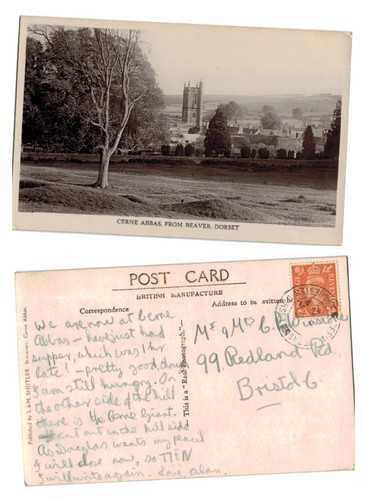 CERNE ABBAS, FROM BEAVER, DORSET
POST CARD
BRITISH MANUFACTURE
Correspondence
Address to be written here
Published by L&M. SHUTLER, Stationers, Cerne Abbas.
This is a "Real Photograph"
We are now at Cerne
Abbas - have just had
supper, which was 1 hr
late! - pretty good, down
I am still hungry. On
the other side of the hill
there is the Cerne Giant.
cut out in the hill side
As Douglas wants my pencil
I will close now, so TTFN
I will write again. love Alan.
Mr & Mrs C.
99, Redland Rd.
Bristol 6
REVENUE